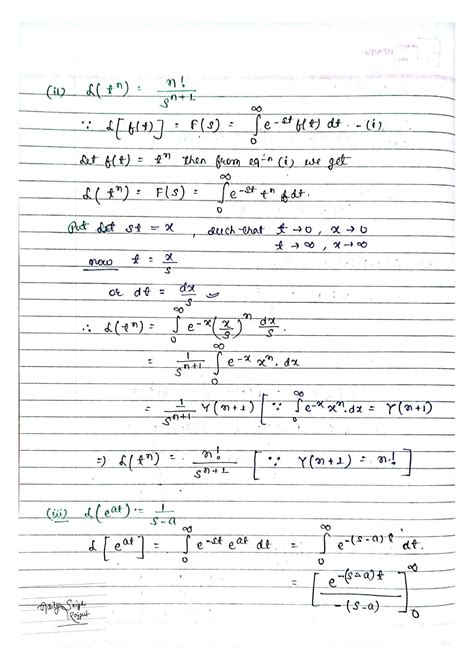 (ii) L(tⁿ) = n! / sⁿ⁺¹
∵ L[f(t)] = F(s) = ∫₀^∞ e^-st f(t) dt - (i)
Let f(t) = tⁿ then from eqⁿ (i) we get
L(tⁿ) = F(s) = ∫₀^∞ e^-st tⁿ dt.
Put let st = x , such that t→0, x→0
t→∞, x→∞
now t = x/s
or dt = dx/s
∴ L(tⁿ) = ∫₀^∞ e^-x (x/s)ⁿ dx/s.
= 1/sⁿ⁺¹ ∫₀^∞ e^-x xⁿ. dx
= 1/sⁿ⁺¹ γ(n+1) [∵ ∫₀^∞ e^-x xⁿ. dx = γ(n+1)
⇒ L(tⁿ) = n! / sⁿ⁺¹ [∵ γ(n+1) = n!]
(iii) L(e^at) = 1/s-a
L[e^at] = ∫₀^∞ e^-st e^at dt = ∫₀^∞ e^-(s-a)t dt.
= [e^-(s-a)t / -(s-a)]₀^∞